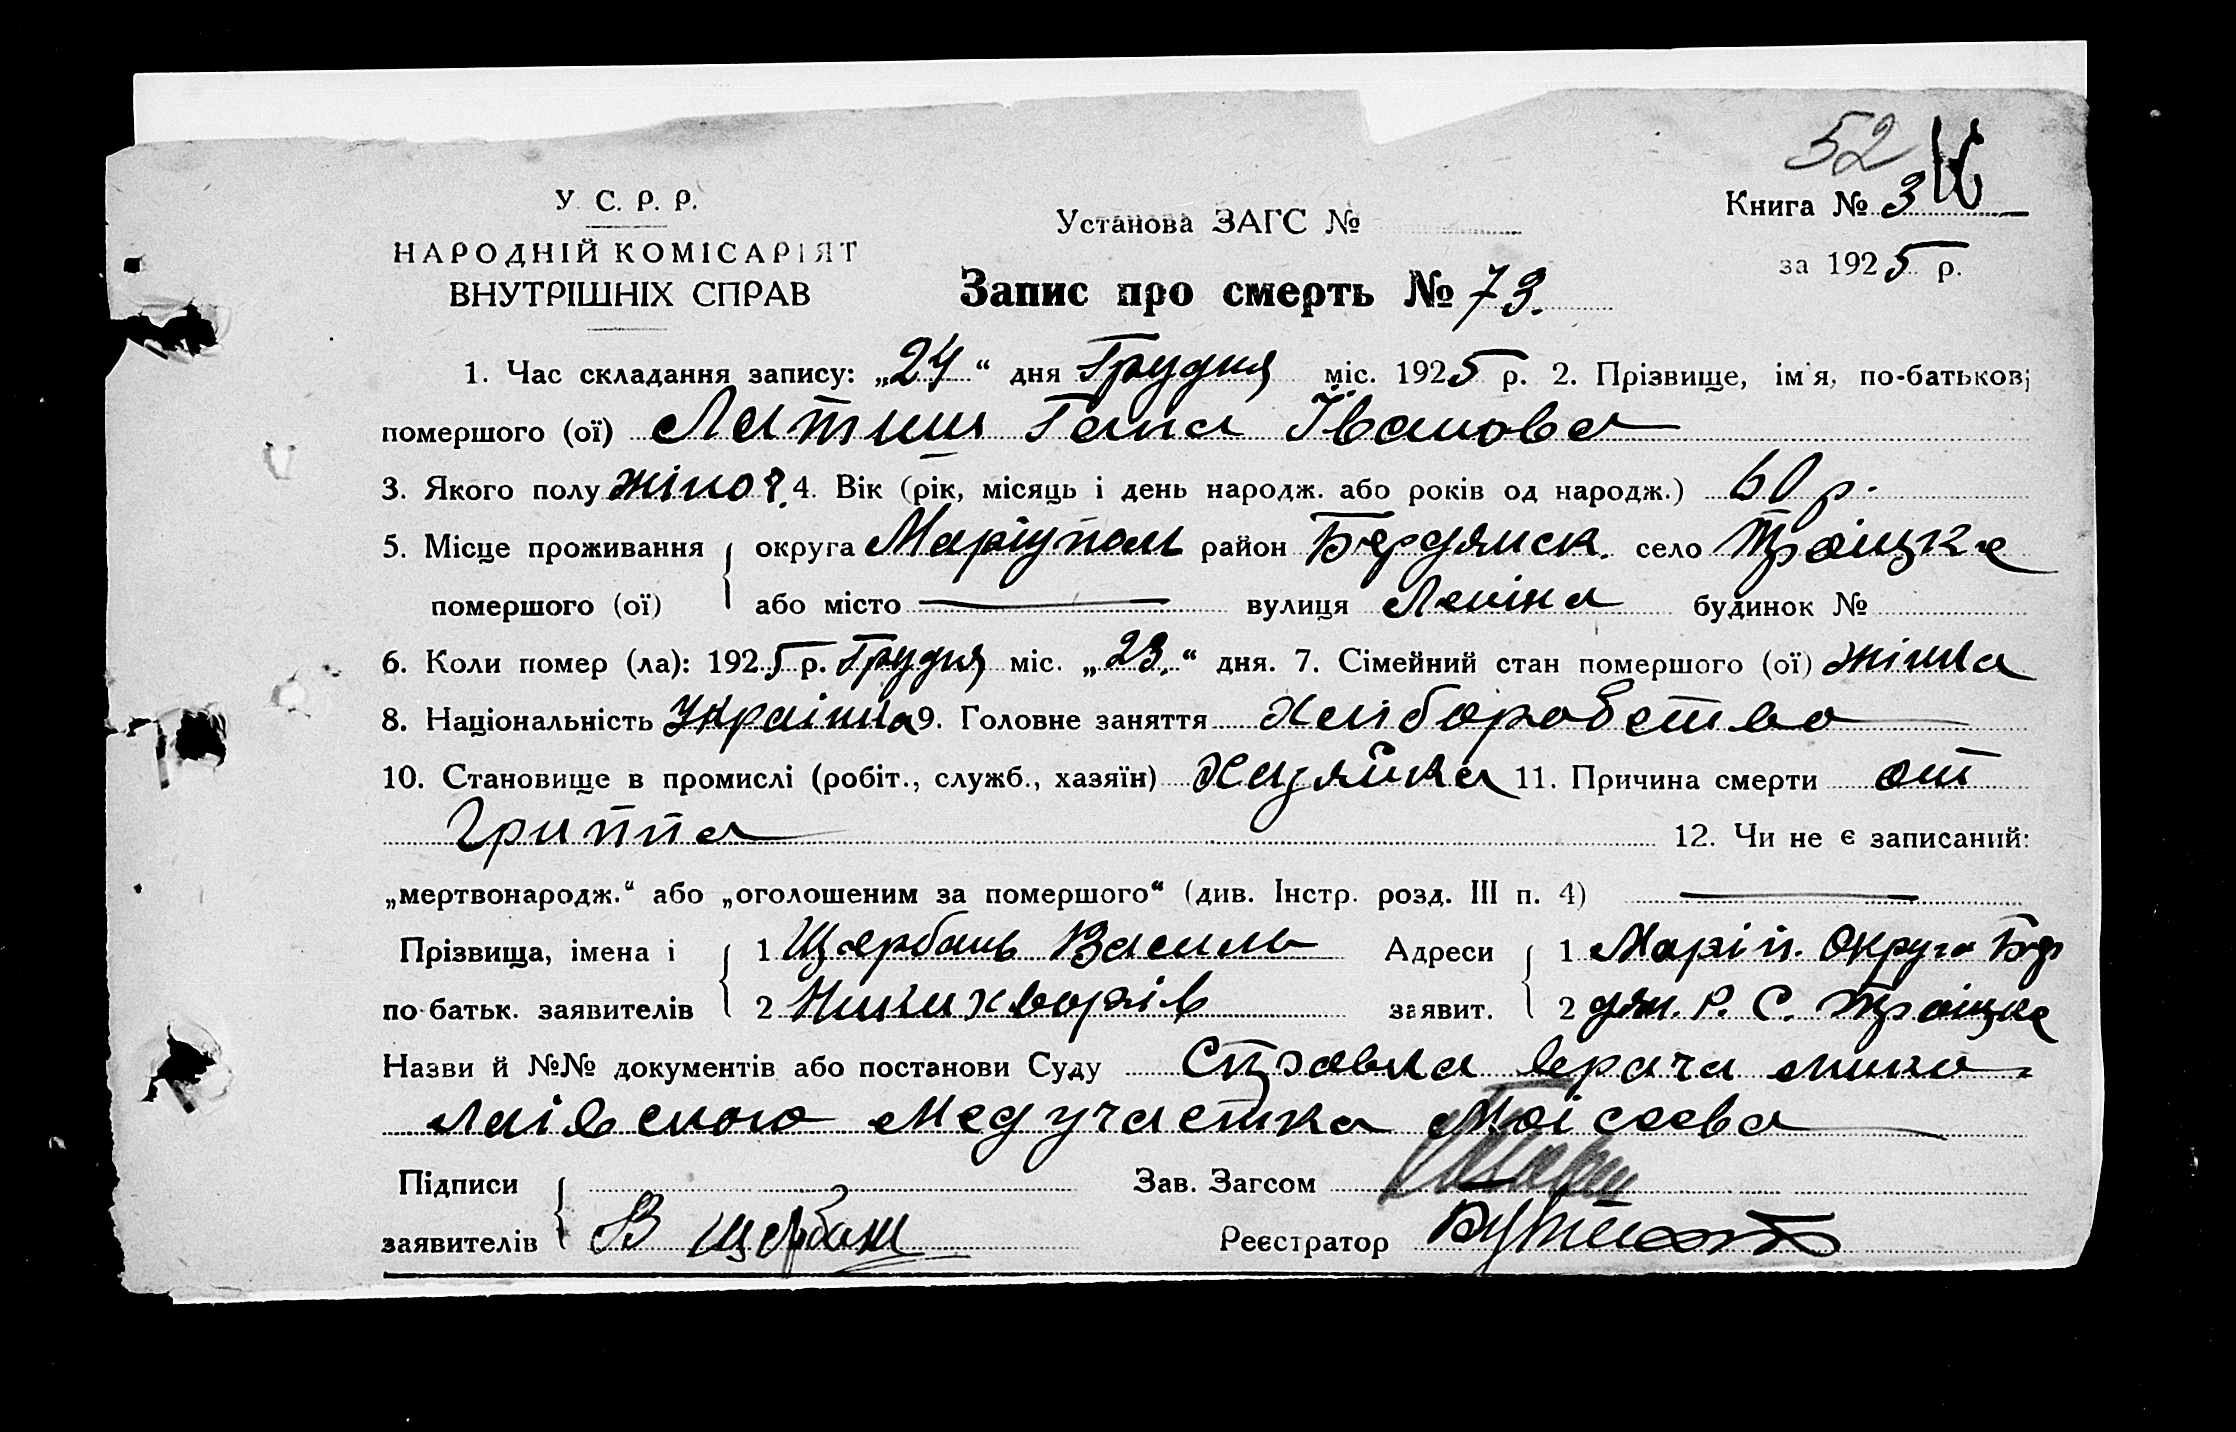 52
У. С. Р. Р.
НАРОДНІЙ КОМІСАРІЯТ
ВНУТРІШНІХ СПРАВ
Установа ЗАГС №
Книга № 3
за 1925 р.
Запис про смерть № 73.
1. Час складання запису: „24“ дня Грудня міс. 1925 р. 2. Прізвище, ім'я, по-батькові
помершого (ої) Латиш Гапа Іванова
3. Якого полу жіноч. 4. Вік (рік, місяць і день народж. або років од народж.) 60 р.
5. Місце проживання округа Маріуполь район Бердянск. село Троіцке
помершого (ої) або місто — вулиця Леніна будинок №
6. Коли помер (ла): 1925 р. Грудня міс. „23.“ дня. 7. Сімейний стан помершого (ої) жінка
8. Національність Украінка 9. Головне заняття хліборобство
10. Становище в промислі (робіт., служб., хазяїн) Хазяйка 11. Причина смерти от
Гриппа 12. Чи не є записаний:
„мертвонародж.“ або „оголошеним за помершого“ (див. Інстр. розд. III п. 4) —
Прізвища, імена і 1 Щербань Василь Адреси 1 Маріп. Округа Бер
по-батьк. заявителів 2 Никихворів заявит. 2 дян. Р. С. Троіцке
Назви й №№ документів або постанови Суду Справка врача нико-
лаівского Медучастка Моісеева
Підписи Зав. Загсом
заявителів В Щербань Реєстратор